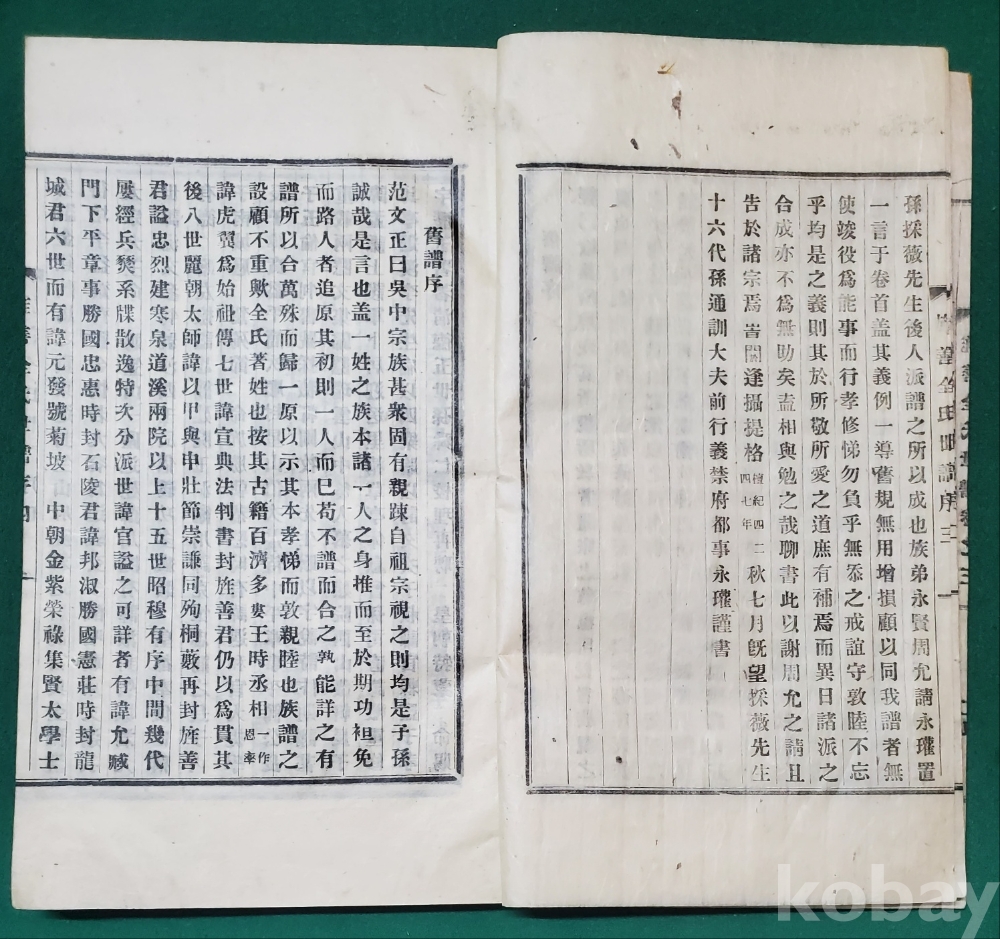 孫採薇先生後人派譜之所以成也族弟永賢周允請永瓘置
一言于卷首盖其義例一導舊規無用增損顧以同我譜者無
使竣役爲能事而行孝修悌勿負乎無忝之戒誼守敦陸不忘
乎均是之義則其於所敬所愛之道庶有補焉而異日諸派之
合成亦不爲無助矣盍相與勉之哉聊書此以謝周允之請且
告於諸宗焉旹閼逢攝提格檀紀四二四七年秋七月旣望採薇先生
十六代孫通訓大夫前行義禁府都事永瓘謹書
舊譜序
范文正曰吳中宗族甚衆固有親踈自祖宗視之則均是子孫
誠哉是言也盖一姓之族本諸一人之身推而至於期功袒免
而路人者追原其初則一人而已苟不譜而合之孰能詳之有
譜所以合萬殊而歸一原以示其本孝悌而敦親睦也族譜之
設顧不重歟全氏著姓也按其古籍百濟多婁王時丞相一作恩率
諱虎翼爲始祖傳七世諱宣典法判書封旌善君仍以爲貫其
後八世麗朝太師諱以甲與申壯節崇謙同殉桐藪再封旌善
君謚忠烈建寒泉道溪兩院以上十五世昭穆有序中間幾代
屢經兵燹系牒散逸特次分派世諱官謚之可詳者有諱允臧
門下平章事勝國忠惠時封石陵君諱邦淑勝國憲莊時封龍
城君六世而有諱元發號菊坡 中朝金紫榮祿集賢太學士
kobay